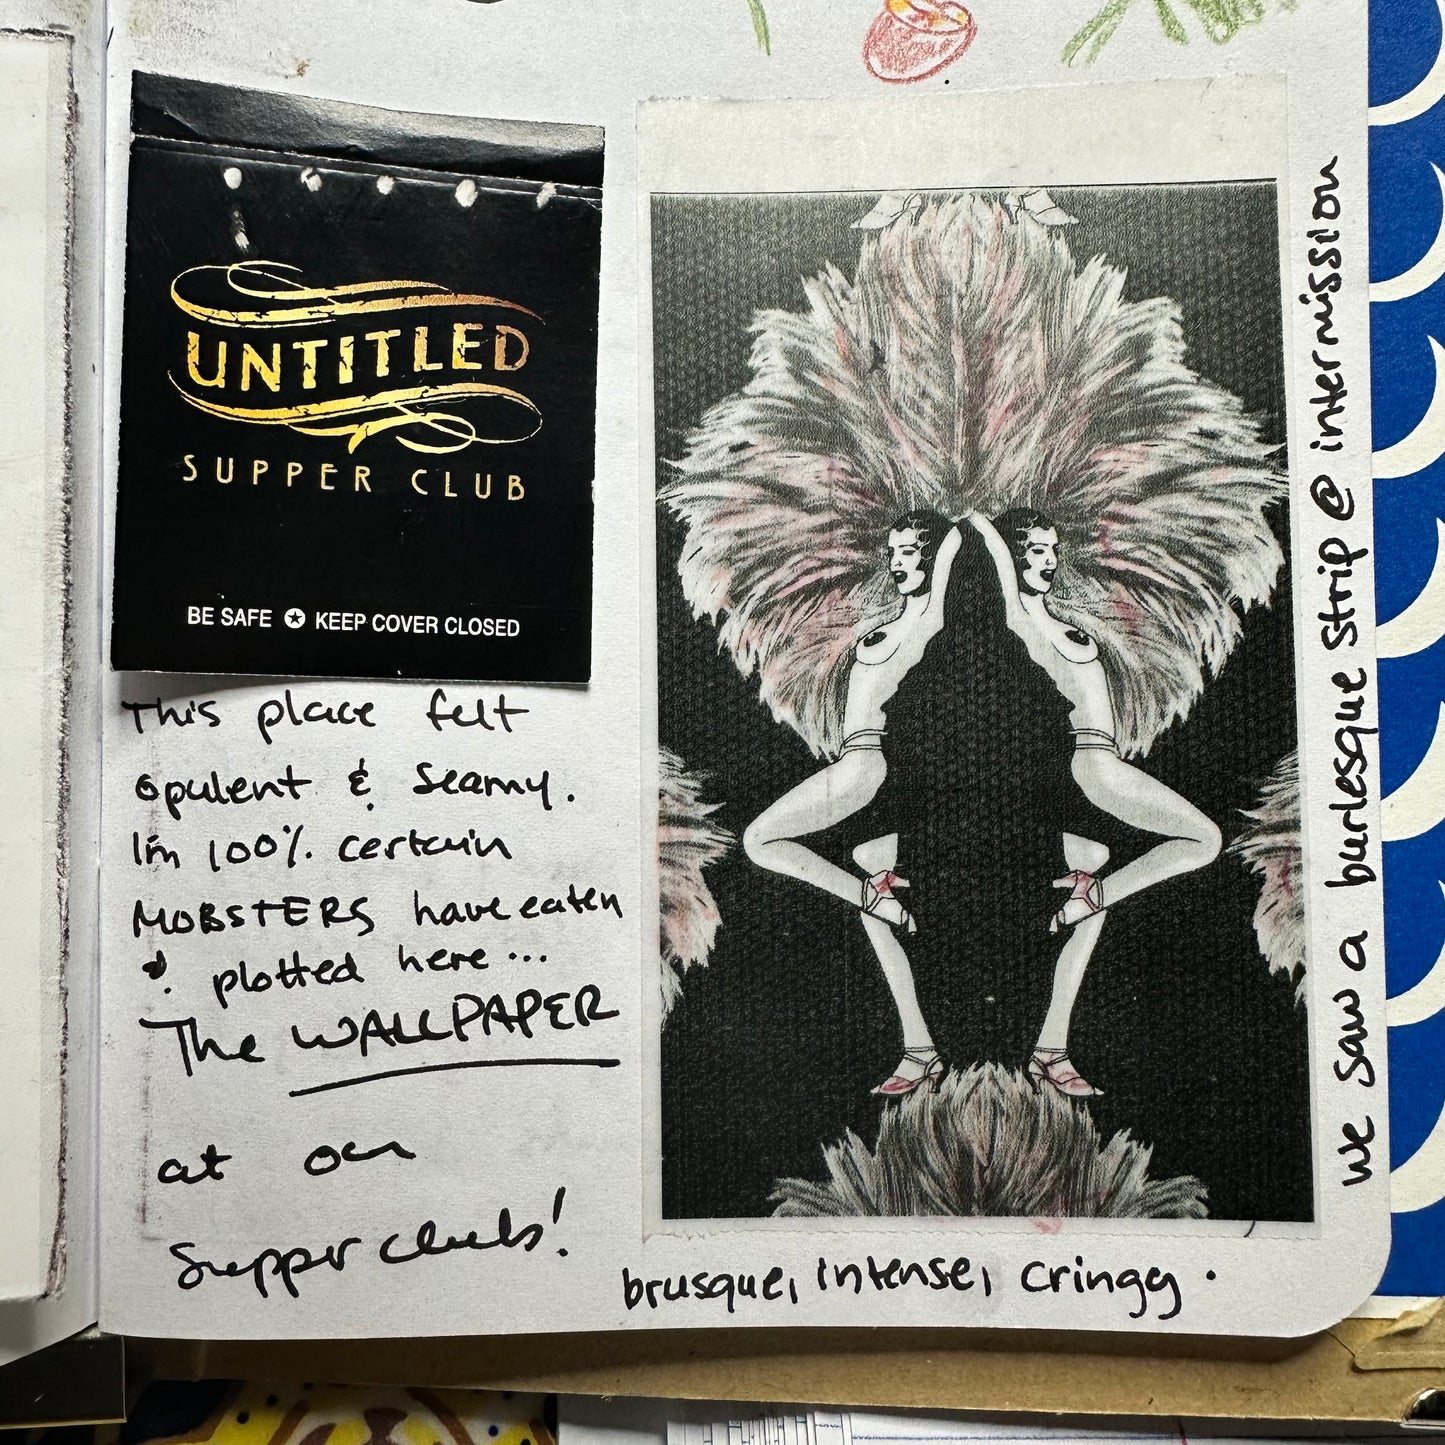 UNTITLED
SUPPER CLUB
BE SAFE ✪ KEEP COVER CLOSED
This place felt
opulent & seamy.
I'm 100% certain
MOBSTERS have eaten
& plotted here...
The WALLPAPER
at our
Supper club!
brusque, intense, cringy.
we saw a burlesque strip @ intermission